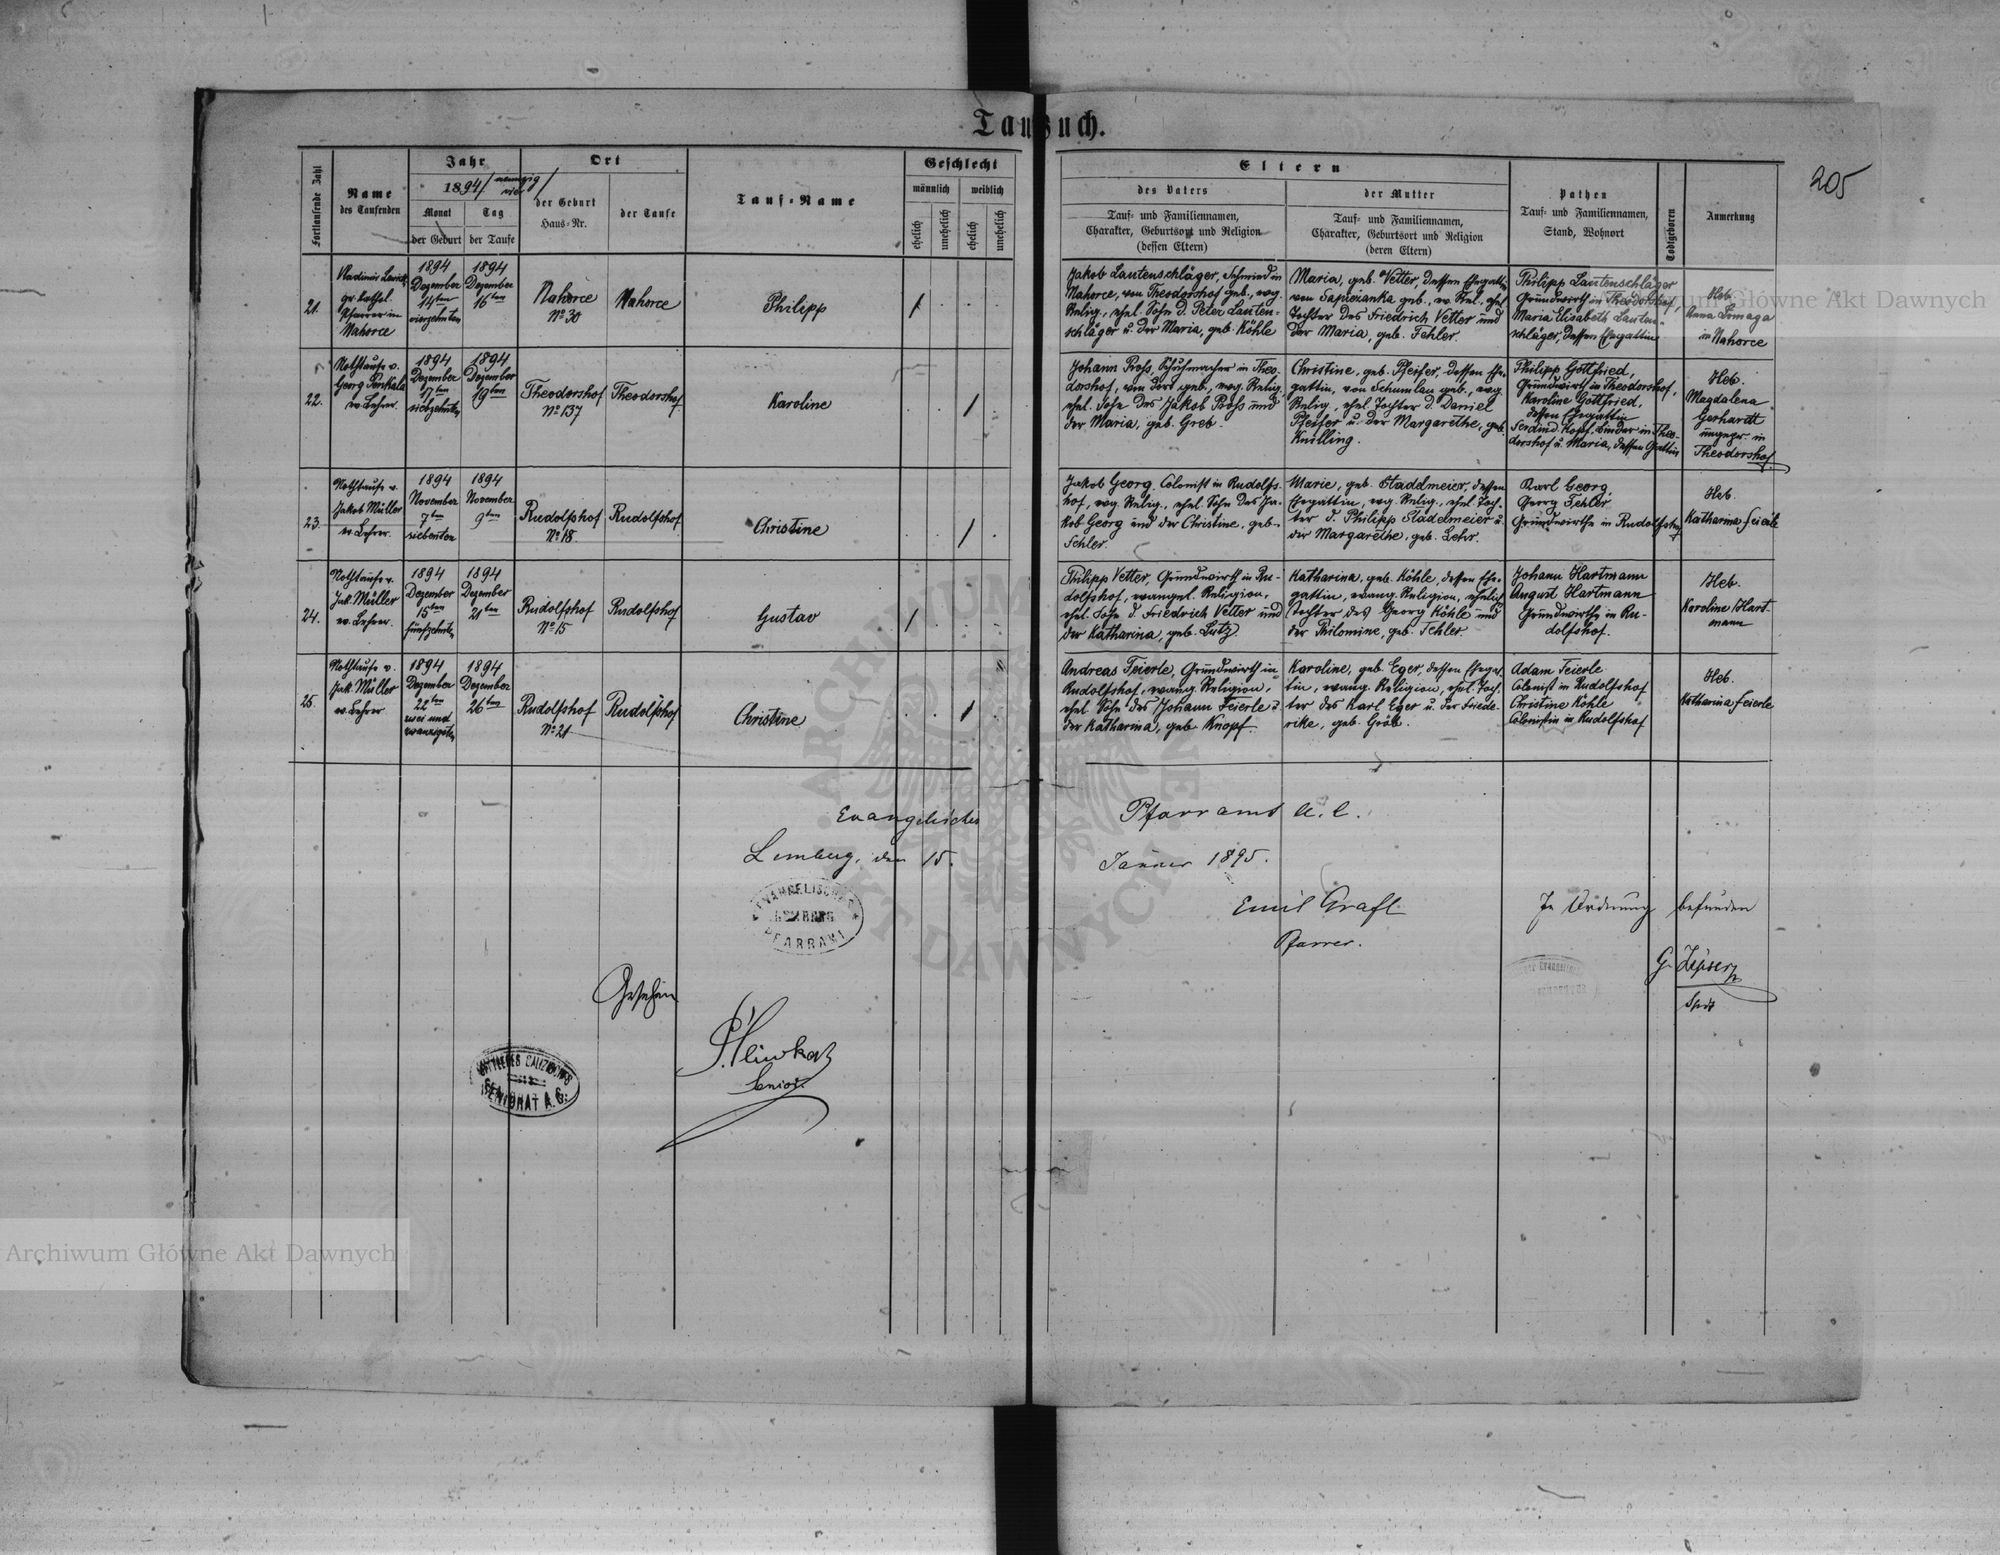 Taufbuch.
205
Fortlaufende Zahl
Name
des Taufenden
Jahr
1894/ neunzig
vier/
Monat
Tag
der Geburt
der Taufe
Ort
der Geburt
Haus-Nr.
der Taufe
Tauf-Name
Geschlecht
männlich
weiblich
ehelich
unehelich
ehelich
unehelich
Eltern
des Vaters
Tauf- und Familiennamen,
Charakter, Geburtsort und Religion
(dessen Eltern)
der Mutter
Tauf- und Familiennamen,
Charakter, Geburtsort und Religion
(deren Eltern)
Pathen
Tauf- und Familiennamen,
Stand, Wohnort
Todtgeboren
Anmerkung
21.
Vladimir
gr. kathol.
Pfarrer in
Nahorce
1894
Dezember
14ten
vierzehnten
1894
Dezember
16ten
Nahorce
No 30
Nahorce
Philipp
/
Jakob Lautenschläger, Schmied in
Nahorce, von Theodorshof geb., evg.
Relig., ehel. Sohn d. Peter Lauten-
schläger u. der Maria, geb. Köhle
Maria, geb. Vetter, dessen Ehegattin
von Sapiezanka geb., ev. Rel., ehel.
Tochter des Friedrich Vetter und
der Maria, geb. Fehler.
Philipp Lautenschläger
Grundwirth in Theodorshof,
Maria Elisabeth Lauten-
schläger, dessen Ehegattin
Heb.
Anna Lomaga
in Nahorce
22.
Nothtaufe v.
Georg Penkala
ev. Lehrer.
1894
Dezember
17ten
siebzehnten
1894
Dezember
19ten
Theodorshof
No 137
Theodorshof
Karoline
/
Johann Pross, Schuhmacher in Theo-
dorshof, von dort geb., evg. Relig.,
ehel. Sohn des Jakob Pross und
der Maria, geb. Greb.
Christine, geb. Pfeifer, dessen Ehe-
gattin, von Schumlau geb., evg.
Relig., ehel. Tochter d. Daniel
Pfeifer u. der Margarethe, geb.
Knilling.
Philipp Gottfried,
Grundwirth in Theodorshof,
Karoline Gottfried,
dessen Ehegattin
Ferdind Kopf, Binder in Theo-
dorshof u. Maria, dessen Gattin
Heb.
Magdalena
Gerhardt
ungepr. in
Theodorshof.
23.
Nothtaufe v.
Jakob Müller
ev. Lehrer.
1894
November
7ten
siebenten
1894
November
9ten
Rudolfshof
No 18.
Rudolfshof
Christine
/
Jakob Georg, Colonist in Rudolfs-
hof, evg. Relig., ehel. Sohn des Ja-
kob Georg und der Christine, geb.
Fehler.
Marie, geb. Stadelmeier, dessen
Ehegattin, evg. Relig., ehel. Toch-
ter d. Philipp Stadelmeier u.
der Margarethe, geb. Lehr.
Karl Georg,
Georg Fehler
Grundwirthe in Rudolfshof
Heb.
Katharina Feierle
24.
Nothtaufe v.
Jak. Müller
ev. Lehrer.
1894
Dezember
15ten
fünfzehnten
1894
Dezember
21ten
Rudolfshof
No 15
Rudolfshof
Gustav
/
Philipp Vetter, Grundwirth in Ru-
dolfshof, evangel. Religion,
ehel. Sohn d. Friedrich Vetter und
der Katharina, geb. Lutz.
Katharina, geb. Köhle, dessen Ehe-
gattin, evang. Religion, eheliche
Tochter des Georg Köhle und
der Philomine, geb. Fehler.
Johann Hartmann
August Hartmann
Grundwirthe in Ru-
dolfshof.
Heb.
Karoline Hart-
mann
25.
Nothtaufe v.
Jak. Müller
ev. Lehrer
1894
Dezember
22ten
zwei und
zwanzigsten
1894
Dezember
26ten
Rudolfshof
No 21
Rudolfshof
Christine
/
Andreas Feierle, Grundwirth in
Rudolfshof, evang. Religion,
ehel. Sohn des Johann Feierle u.
der Katharina, geb. Knopf.
Karoline, geb. Eger, dessen Ehegat-
tin, evang. Religion, ehel. Toch-
ter des Karl Eger u. der Friede-
rike, geb. Gröb.
Adam Feierle
Colonist in Rudolfshof
Christine Köhle
Colonistin in Rudolfshof
Heb.
Katharina Feierle
Evangelisches Pfarramt A. C.
Lemberg, den 15. Jänner 1895.
EVANGELISCHES
LEMBERG
PFARRAMT
Emil Grafl
Pfarrer.
In Ordnung befunden
G. Zipser
Supt
Gesehen
Senior.
MITTLERES GALIZISCHES
SENIORAT A. C.
Archiwum Główne Akt Dawnych
Archiwum Główne Akt Dawnych
ARCHIWUM GŁÓWNE
AKT DAWNYCH